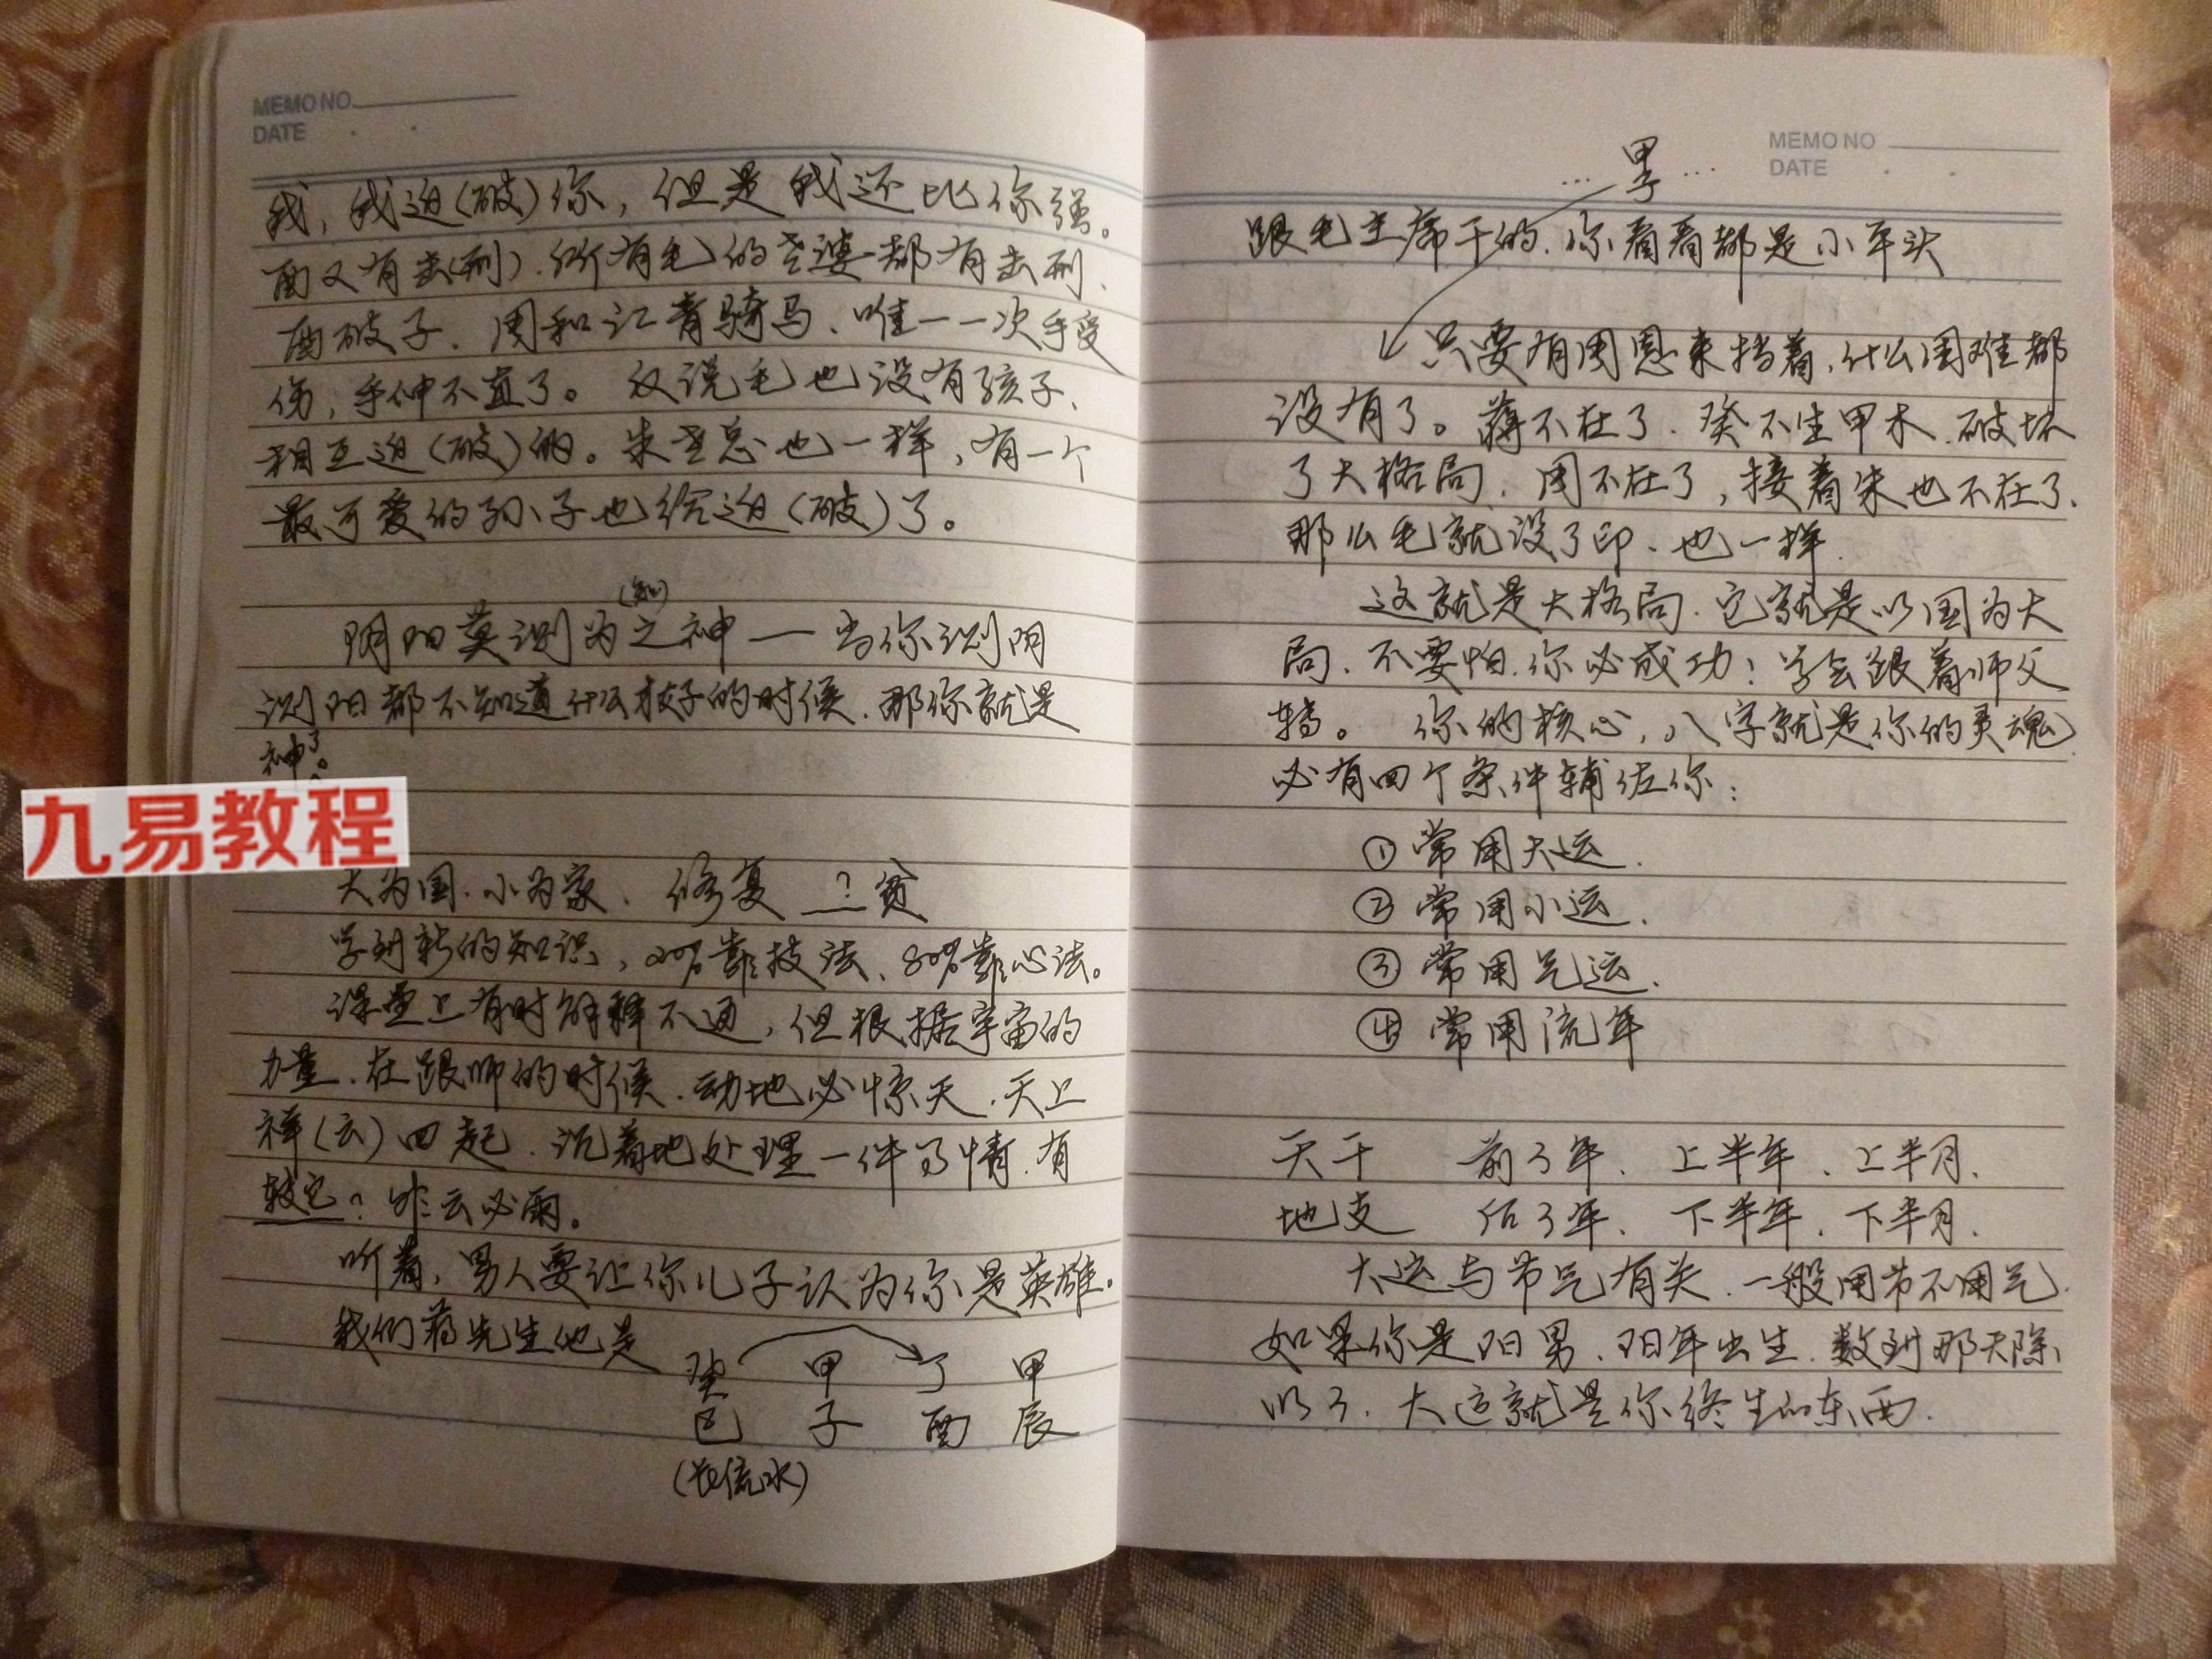 MEMO NO
DATE
我,我迫(破)你,但是我还比你强。
酉又有击(刑).所有毛的老婆都有击刑、
酉破子.周和江青骑马、唯一一次手受
伤,手伸不直了。又说毛也没有孩子、
相互迫(破)的。朱老总也一样,有一个
最可爱的孙子也给迫(破)了。
(知)
阴阳莫测为之神——当你测阴
测阳都不知道什么才好的时候.那你就是
神了。
九易教程
大为国.小为家、修复 ?贫
学到新的知识,20%靠技法、80%靠心法。
课堂上有时解释不通,但根据宇宙的
力量.在跟师的时候.动地必惊天.天上
祥(云)四起.沉着地处理一件事情.有
云必雨。
听着,男人要让你儿子认为你是英雄。
我们蒋先生他是
癸 甲 丁 甲
巳 子 酉 辰
(长流水)
MEMO NO
DATE
... 甲子 ...
跟毛主席干的.你看看都是小平头
只要有周恩来挡着,什么困难都
没有了。蒋不在了.癸不生甲木.破坏
了大格局.周不在了,接着朱也不在了.
那么毛就没了印、也一样.
这就是大格局.它就是以国为大
局.不要怕.你必成功!学会跟着师父
转。你的核心,八字就是你的灵魂.
必有四个条件辅佐你:
① 常用大运.
② 常用小运.
③ 常用气运.
④ 常用流年
天干 前5年、上半年、上半月.
地支 后5年、下半年.下半月.
大运与节气有关.一般用节不用气.
如果你是阳男.阳年出生.数到那天除
以3.大运就是你终生的东西.